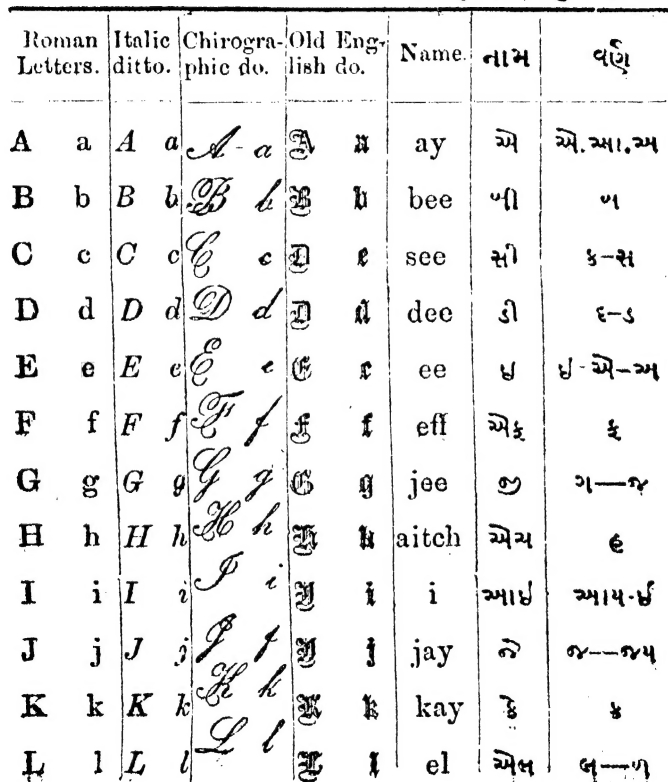 Roman Letters. Italic ditto. Chirographic do. Old English do. Name. નામ વર્ણ
A a A a A a A a ay એ એ.આ.અ
B b B b B b B b bee બી બ
C c C c C c C c see સી ક–સ
D d D d D d D d dee ડી દ–ડ
E e E e E e E e ee ઇ ઇ-એ–અ
F f F f F f F f eff એફ ફ
G g G g G g G g jee જી ગ—જ
H h H h H h H h aitch એચ હ
I i I i I i I i i આઇ આય-ઈ
J j J j J j J j jay જે જ—જય
K k K k K k K k kay કે ક
L l L l L l L l el એલ લ—ળ